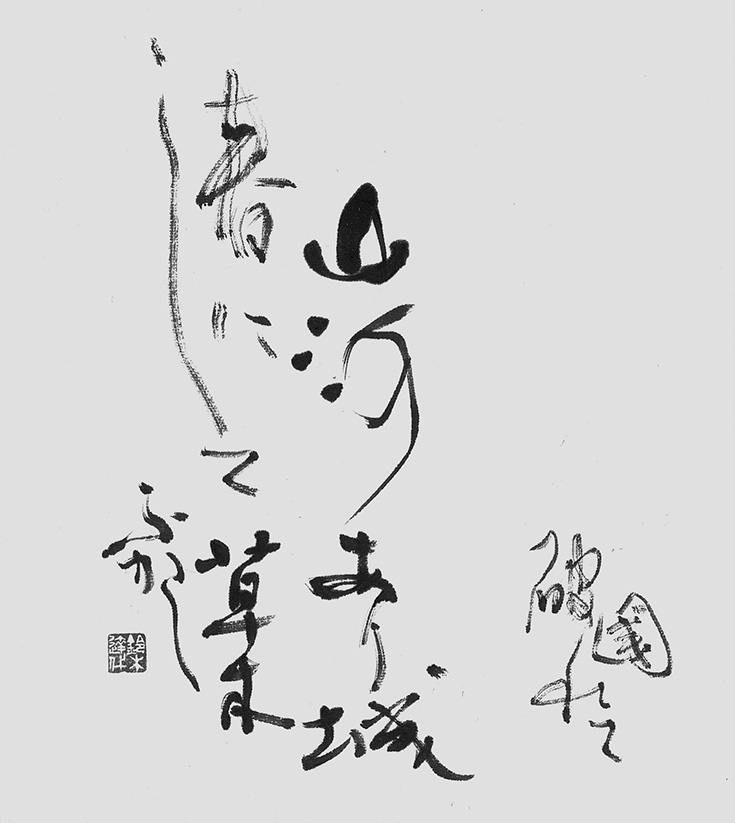 國
破れて
山河あり城
春にして草木
ふかし
鈴木